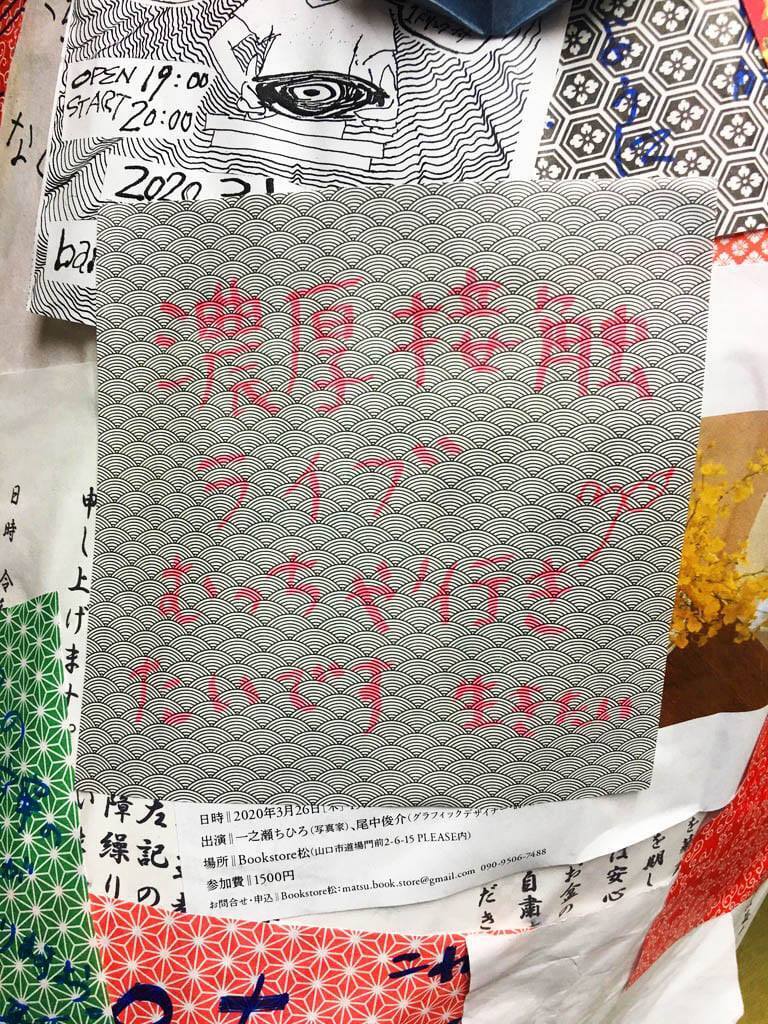 OPEN 19:00
START 20:00
2020.3
濃厚接触
ライブ
むっちゃ行き
たいです 生きたい
申し上げます。
日時 令
左記の
障繰り
日時‖2020年3月26日[木]
出演‖一之瀬ちひろ(写真家)、尾中俊介(グラフィックデザイナー
場所‖Bookstore松(山口市道場門前2-6-15 PLEASE内)
参加費‖1500円
お問合せ・申込‖Bookstore松:matsu.book.store@gmail.com 090-9506-7488
を期し
は安心
お金の
自粛
だき
これ